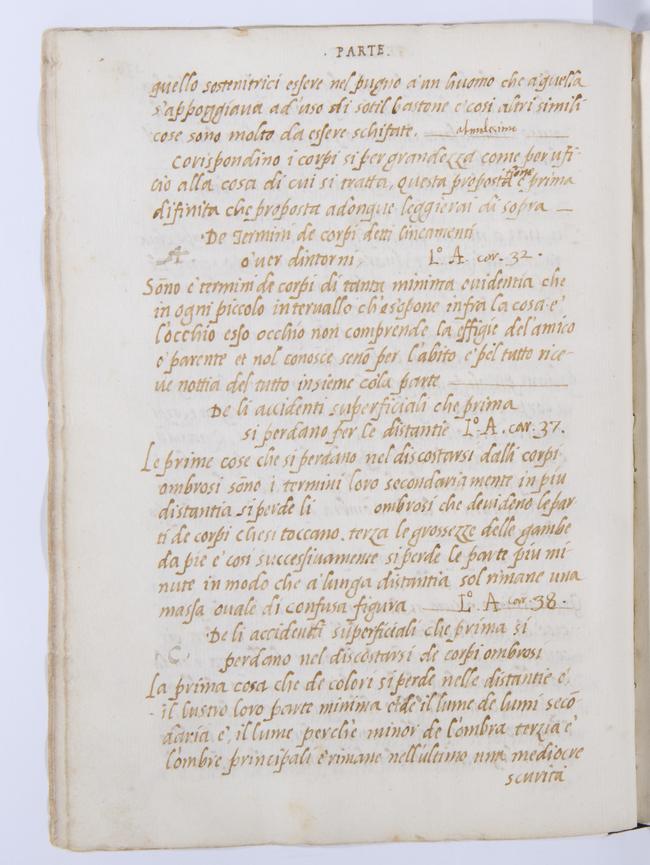 . PARTE.
quello sostenitrici essere nel pugno a'un huomo che a'quella
s'appoggiaua ad'uso di sotil bastone e' cosi altri simili
cose sono molto da essere schifate.
Corispondino i corpi si per grandezza come per ufi-
cio alla cosa di cui si tratta, questa propositione e' prima
difinita che proposta adonque leggierai di sopra —
De Termini de corpi detti lineamenti
o'uer dintorni L.o A. car. 32.
Sono e' termini de corpi di tanta minima euidentia che
in ogni piccolo interuallo ch'esopone infra la cosa e'
l'occhio esso occhio non comprende la effigie del'amico
o' parente et nol conosce senō per l'abito e' p̄el tutto rice-
ue nottia del tutto insieme cola parte
De li accidenti superficiali che prima
si perdano per le distantie L.o A. car. 37.
Le prime cose che si perdano nel discostarsi dalli corpi
ombrosi sōno i termini loro secondariamente in piu
distantia si perde li ombrosi che deuideno le par
ti de corpi che si toccano. terza le grossezze delle gambe
da pie e' cosi successiuamente si perde le parte piu mi-
nute in modo che a' lunga distantia sol rimane una
massa ouale di confusa figura L.o A. car. 38.
De li accidenti superficiali che prima si
perdano nel discostarsi de corpi ombrosi
C
La prima cosa che de colori si perde nelle distantie e',
il lustro loro parte minima et de il lume de lumi secō-
daria e', il lume perche' minor de l'ombra terzia e'
l'ombre principali e' rimane nell'ultimo una mediocre
scurita